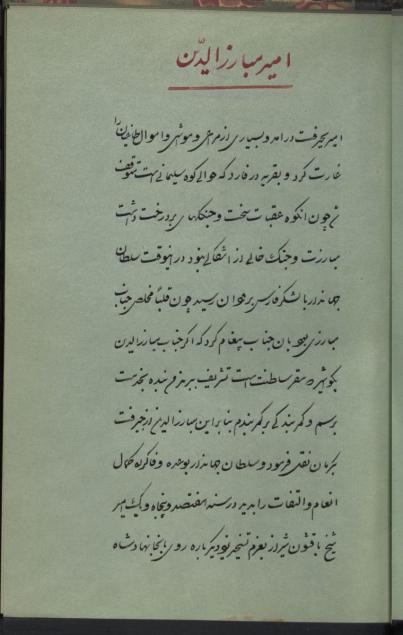 امیر مبارز الدّین
امیر بجیرفت درآمد و بسیاری از مراعی و مواشی و اموال طاغیان را
غارت کرد و بقریه در فارد که حوالی کوه سلیمانی است متوقف
شد چون انکوه عقبات سخت و جنکلهای پر درخت داشت
مبارزت و جنک خالی از اشکالی نبود در اینوقت سلطان
جهاندار با لشکر فارس رسید چون قلباً مخلص جناب
مبارزی بود بان جناب پیغام کرد که اکر جناب مبارز الدین
که مقر سلطنت است تشریف ببرند بنده بخدمت
برسم و کمر بندکی بر کمر بندم بنابراین مبارز الدین از جیرفت
بکرمان نقل فرمود و سلطان جهاندار بوعده وفا کرده کمال
انعام و التفات را بدید در سنه هفتصد و پنجاه و یک امیر
شیخ با قشون شیراز بعزم تسخیر یزد دیکرباره روی بانجا نهاد شاه